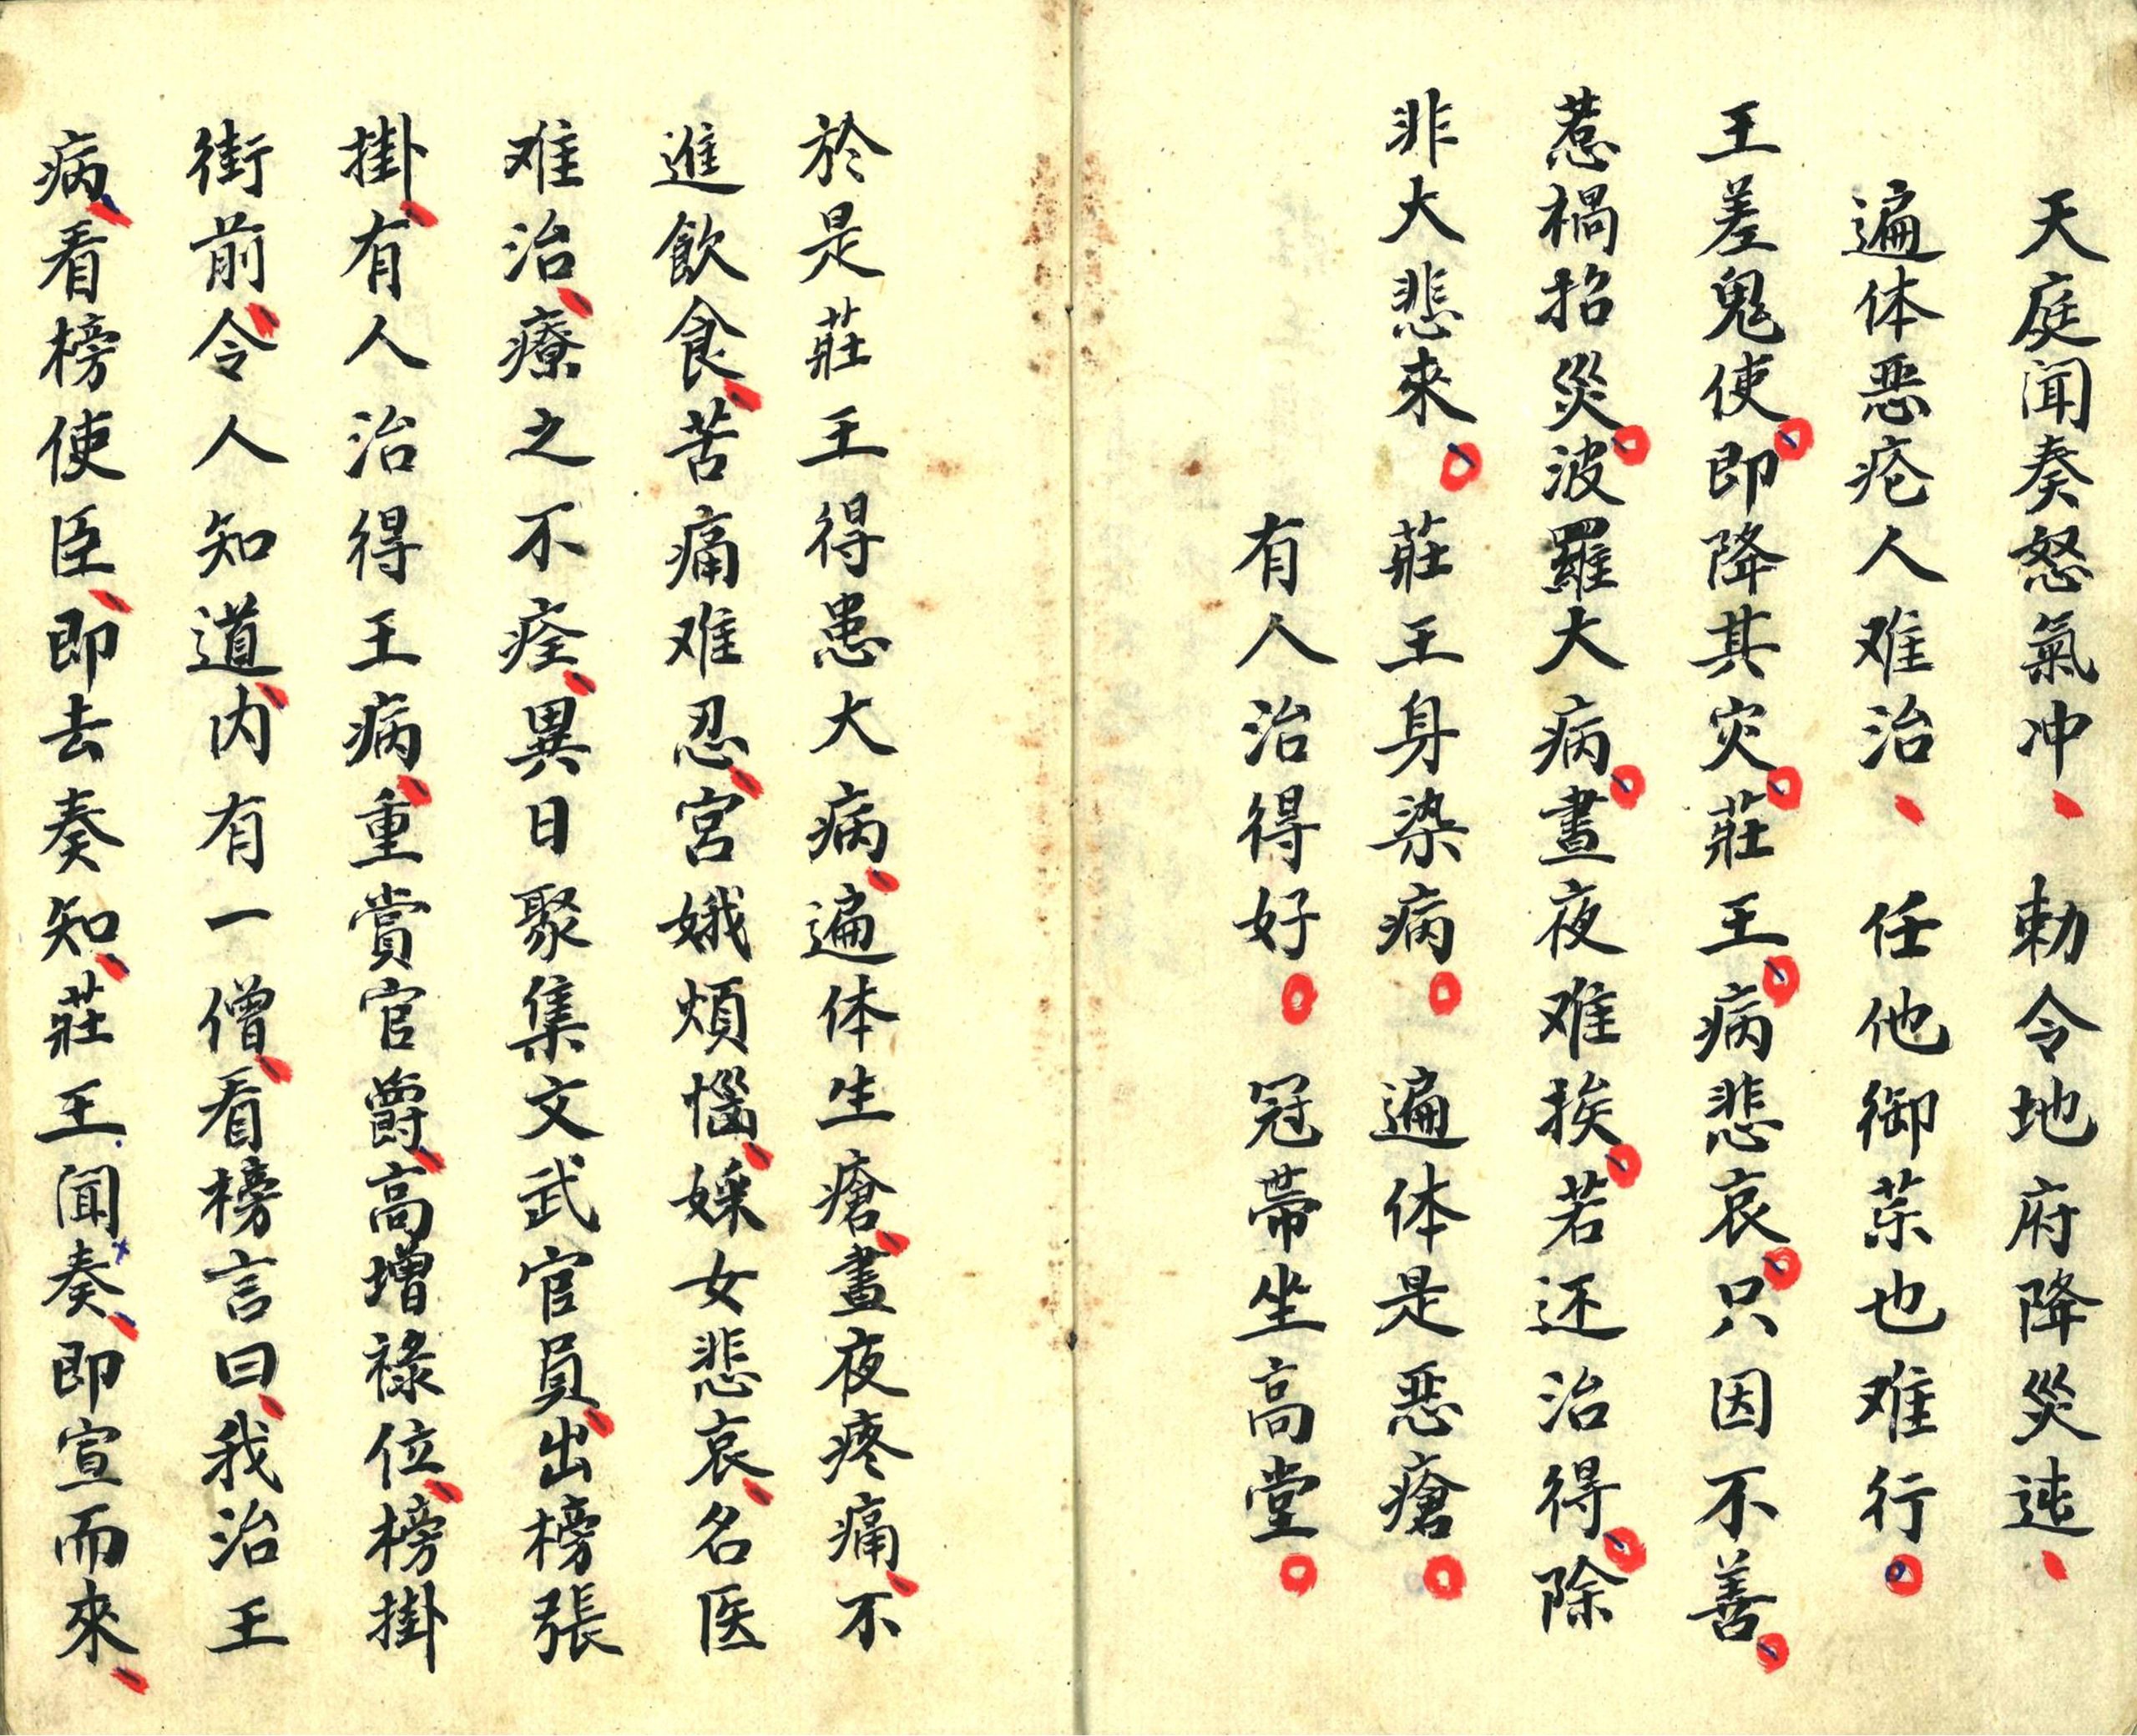 天庭闻奏怒氣冲、勅令地府降災迍、
遍体恶疮人难治、任他御茶也难行。
王差鬼使。即降其灾。莊王。病悲哀。只因不善。
惹槝招災。波羅大病。晝夜难挨。若还治得。除
非大悲來。莊王身染病。遍体是恶瘡。
有人治得好。冠帶坐高堂。
於是莊王得患大病、遍体生瘡、晝夜疼痛、不
進飲食、苦痛难忍、宮娥煩惱、婇女悲哀、名医
难治、療之不痊、異日聚集文武官員、出榜張
掛、有人治得王病、重賞官爵、高增祿位、榜掛
街前、令人知道、内有一僧、看榜言曰、我治王
病、看榜使臣、即去奏知、莊王聞奏、即宣而來、